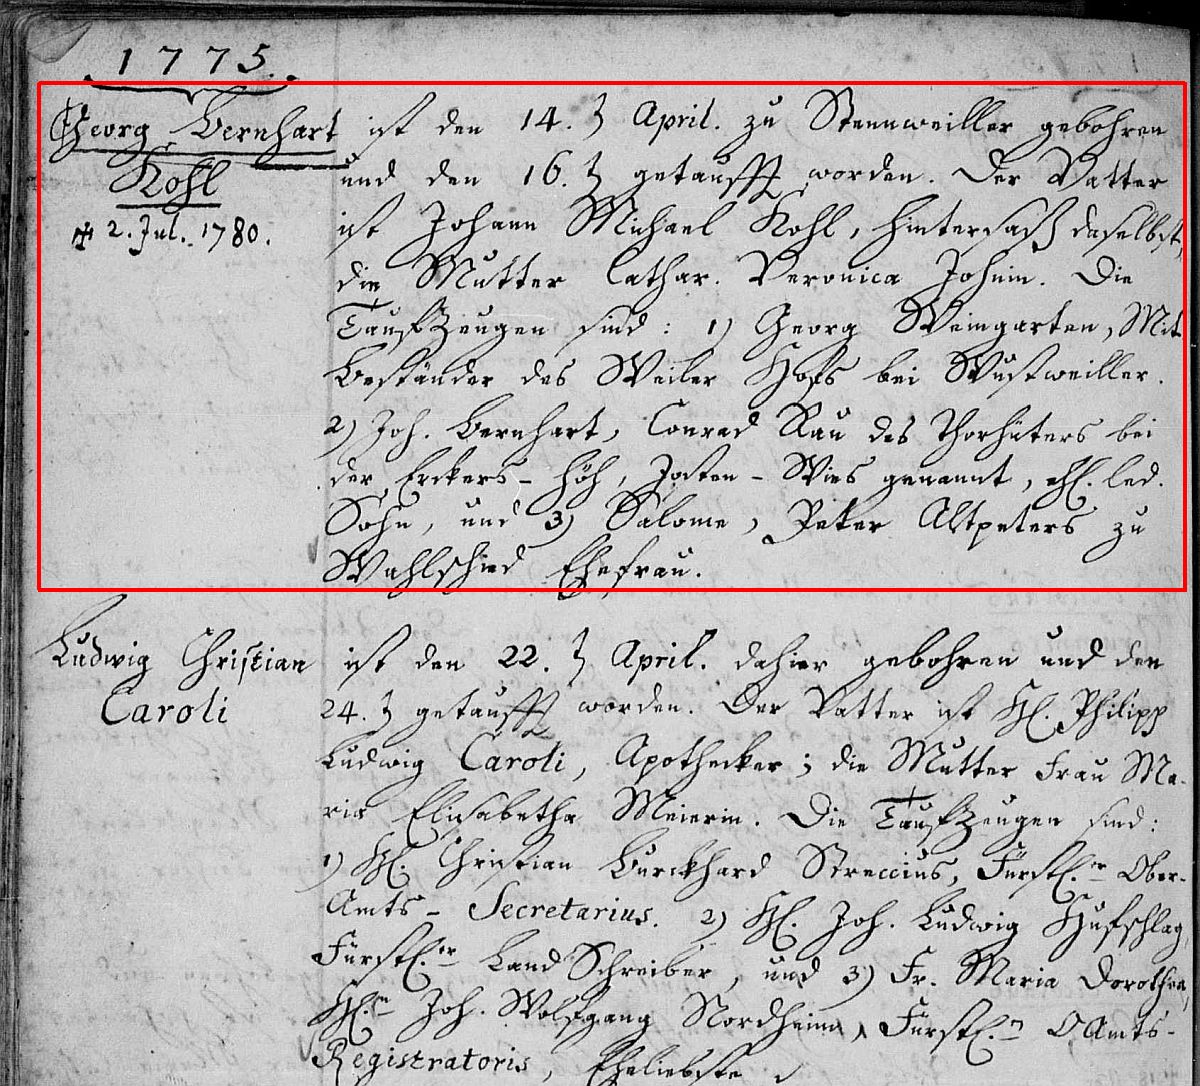 1775.
Georg Bernhart
Kohl
2. Jul. 1780.
ist den 14. April. zu Stennweiller gebohren
und den 16. getaufft worden. Der Vatter
ist Johann Michael Kohl, Hintersaß daselbst,
die Mutter Cathar. Veronica Johnin. Die
Tauffzeugen sind: 1) Georg Weingarten, Mit
Beständer des Weiler Hofs bei Wustweiller.
2) Joh. Bernhart, Conrad Rau des Thorhüters bei
der Erckers-Höh, Josten-Wies genannt, ehl. led.
Sohn, und 3) Salome, Peter Altpeters zu
Wahlschied Ehefrau.
Ludwig Christian
Caroli
ist den 22. April. dahier gebohren und den
24. getaufft worden. Der Vatter ist H. Philipp
Ludwig Caroli, Apothecker; die Mutter Frau Ma-
ria Elisabetha Meierin. Die Tauffzeugen sind:
1) H. Christian Burckhard Streccius, Fürstl.r Ober-
Amts-Secretarius. 2) H. Joh. Ludwig Hufschlag,
Fürstl.er Land Schreiber, und 3) Fr. Maria Dorothea,
H.n Joh. Wolfgang Nordheim, Fürstl.n OAmts-
Registratoris, Eheliebste